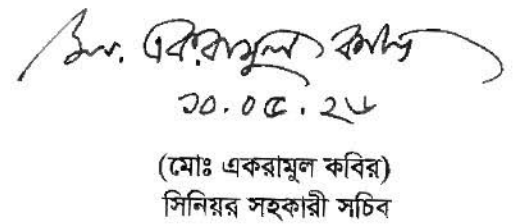 মো. একরামুল কবির
১০.০৫.২৬
(মোঃ একরামুল কবির)
সিনিয়র সহকারী সচিব